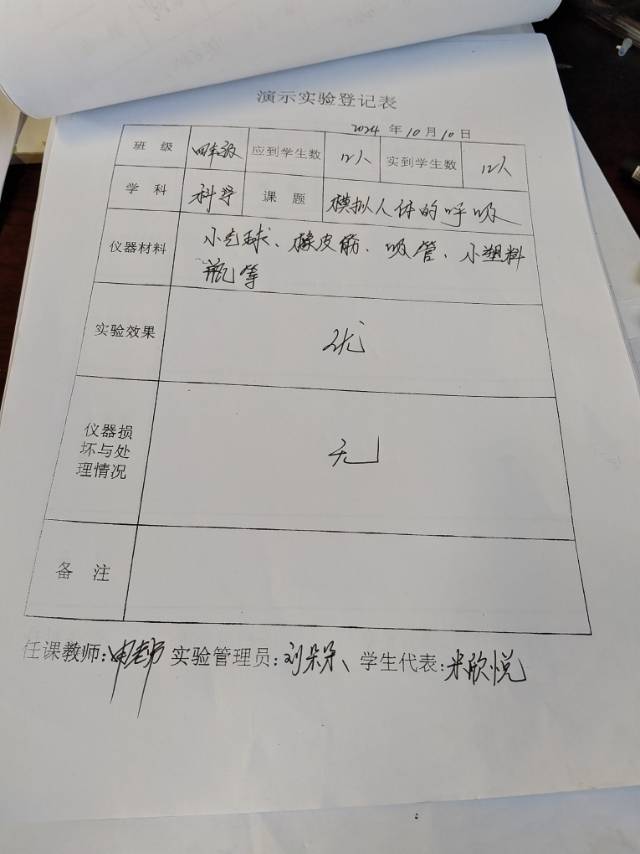 演示实验登记表
2024 年 10 月 10 日
班 级 四年级 应到学生数 12人 实到学生数 12人
学 科 科学 课 题 模拟人体的呼吸
仪器材料 小气球、橡皮筋、吸管、小塑料
瓶等
实验效果 优
仪器损
坏与处
理情况 无
备 注
任课教师: 实验管理员:刘朵朵、学生代表:米欣悦